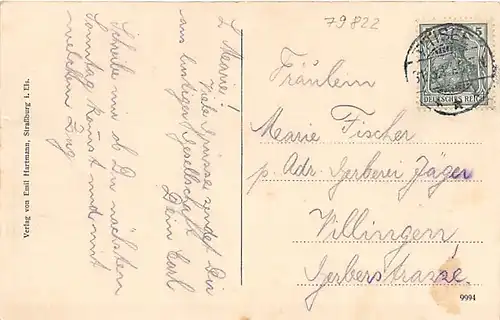 79822
L Marie!
Viele Grüsse sendet Dir
aus lustiger Gesellschaft
Dein Carl
Schreibe mir ob Du nächsten
Sonntag kommst und mit
welchem Zug
Verlag von Emil Hartmann, Straßburg i. Els.
5
DEUTSCHES REICH
Fräulein
Marie Fischer
p. Adr. Gerberei Jäger
Villingen
Gerberstrasse
9994